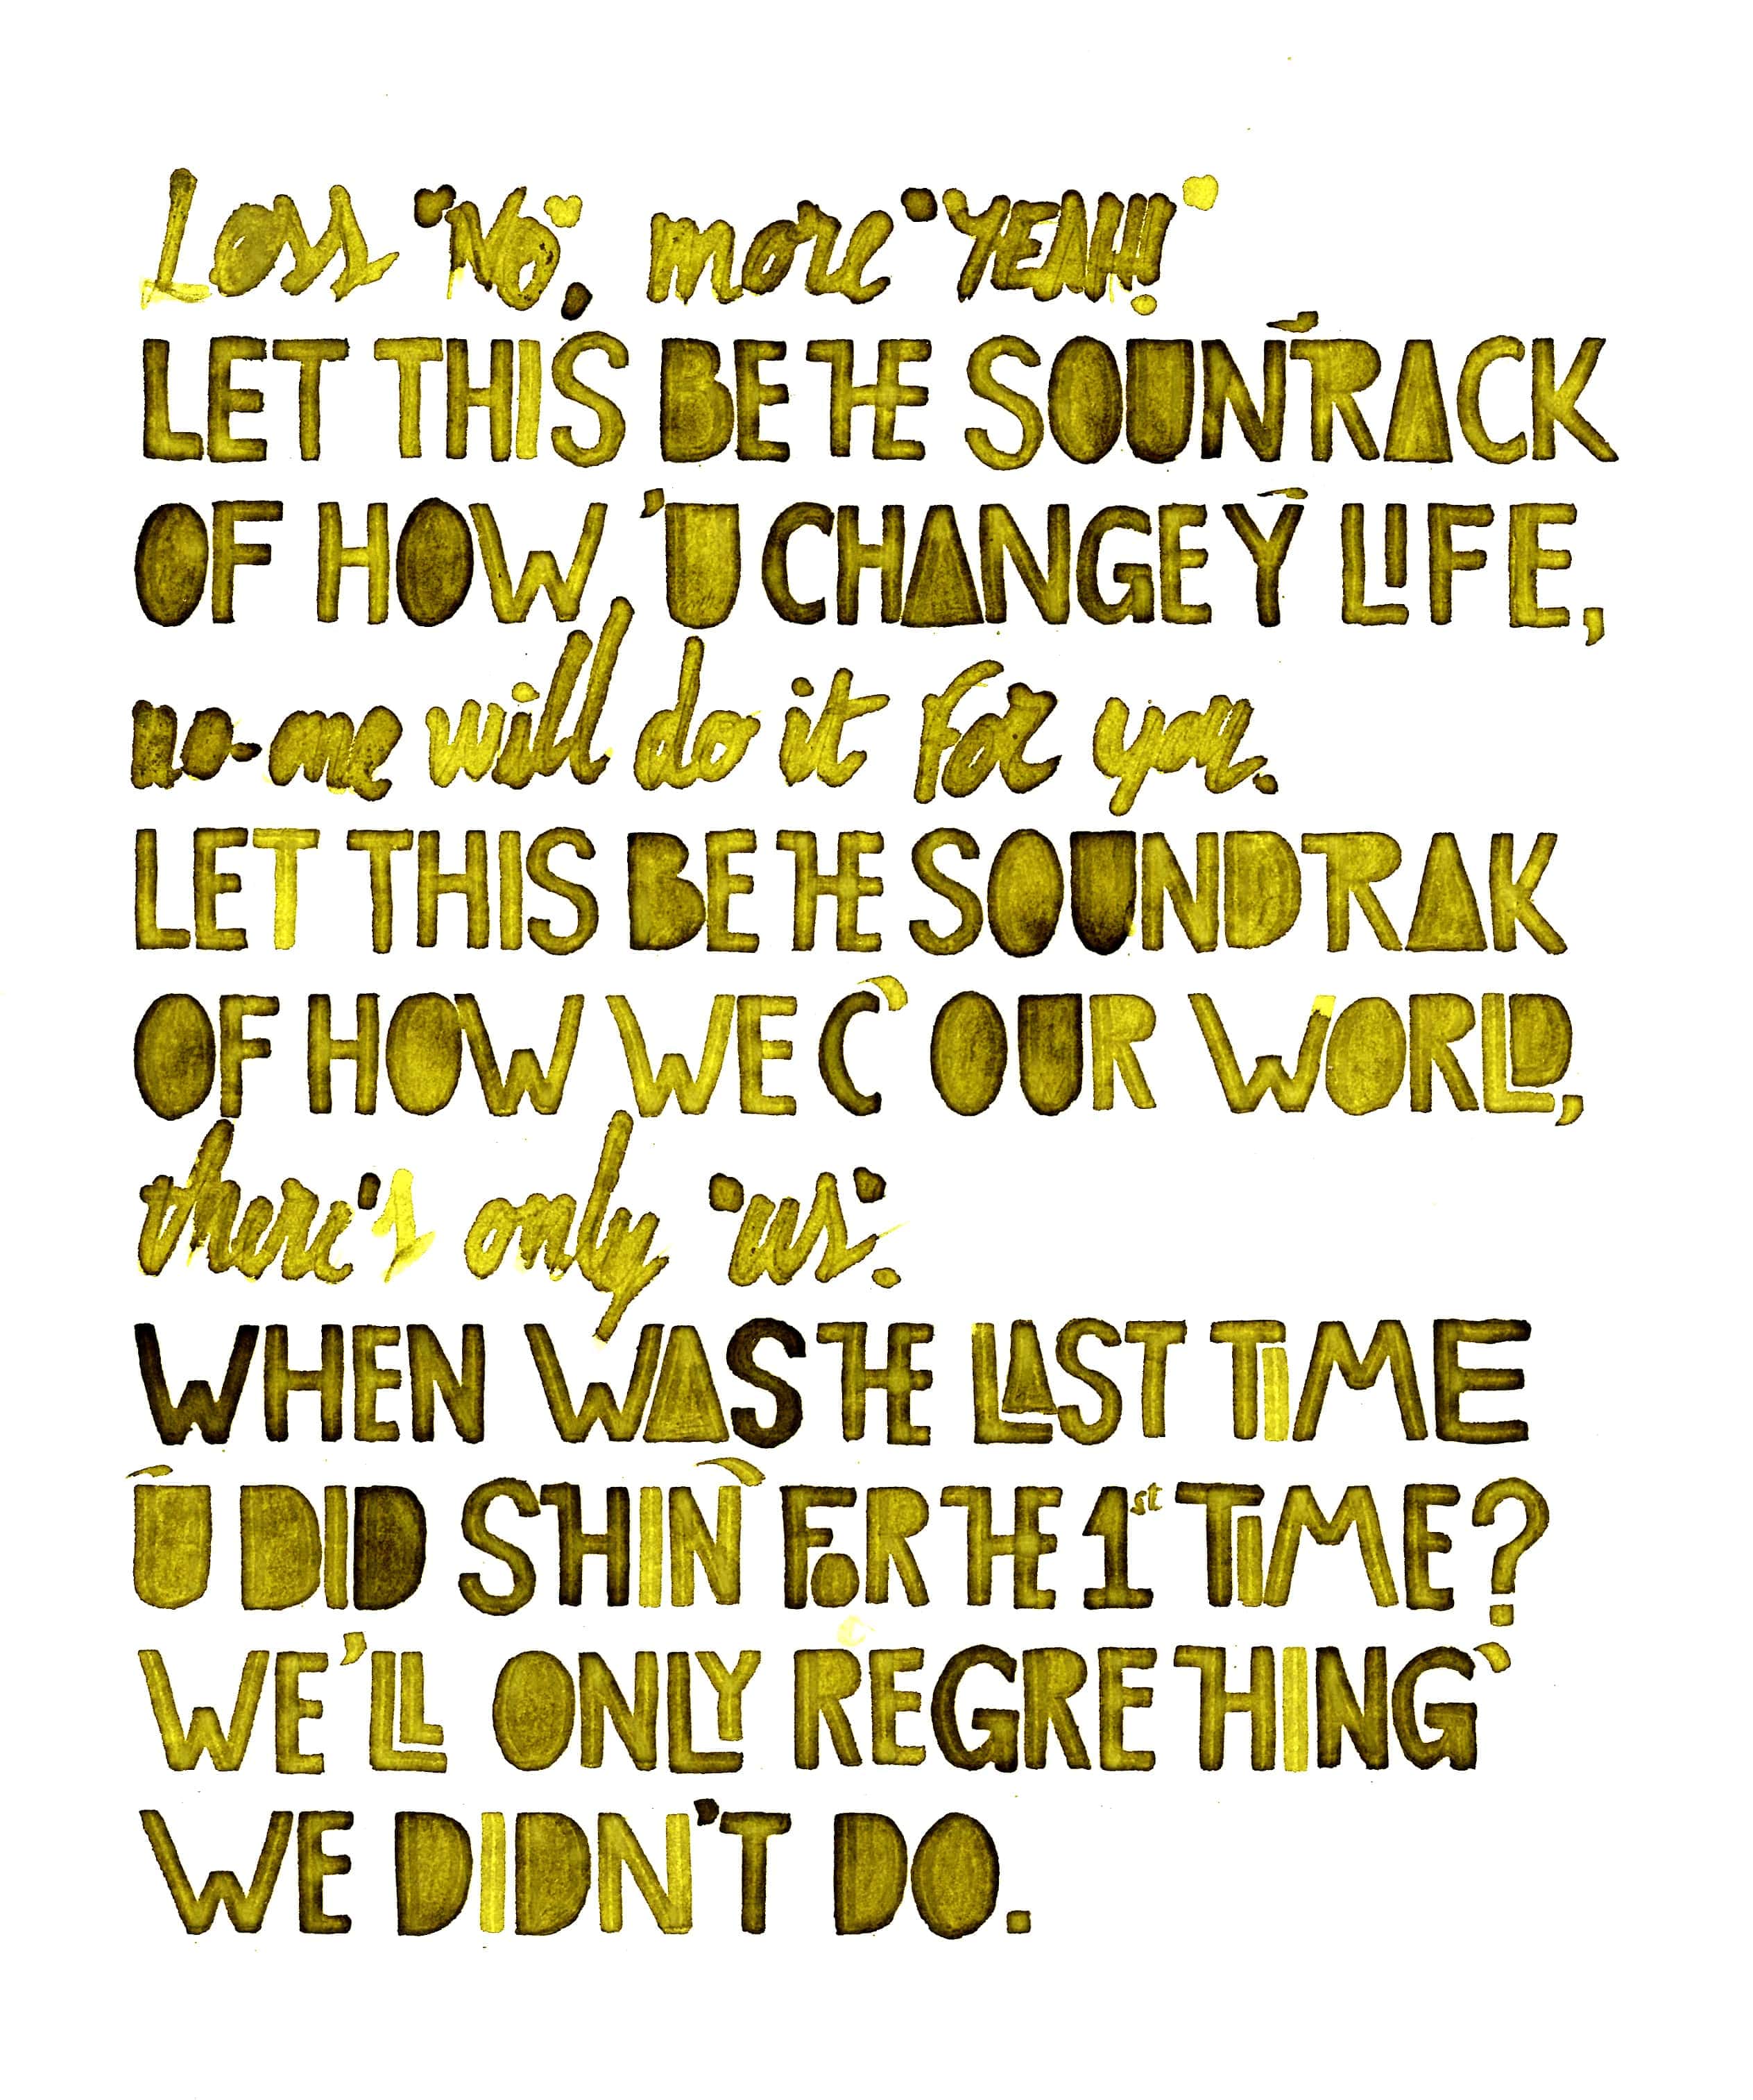 Loss "No", more "YEAH!!"
LET THIS BE THE SOUN'TRACK
OF HOW 'U CHANGE Y' LIFE,
no-one will do it for you.
LET THIS BE THE SOUNDTRAK
OF HOW WE C' OUR WORLD,
there's only "us".
WHEN WAS THE LAST TIME
'U DID SHIN' FOR THE 1st TIME?
WE'LL ONLY REGRE THING'
WE DIDN'T DO.